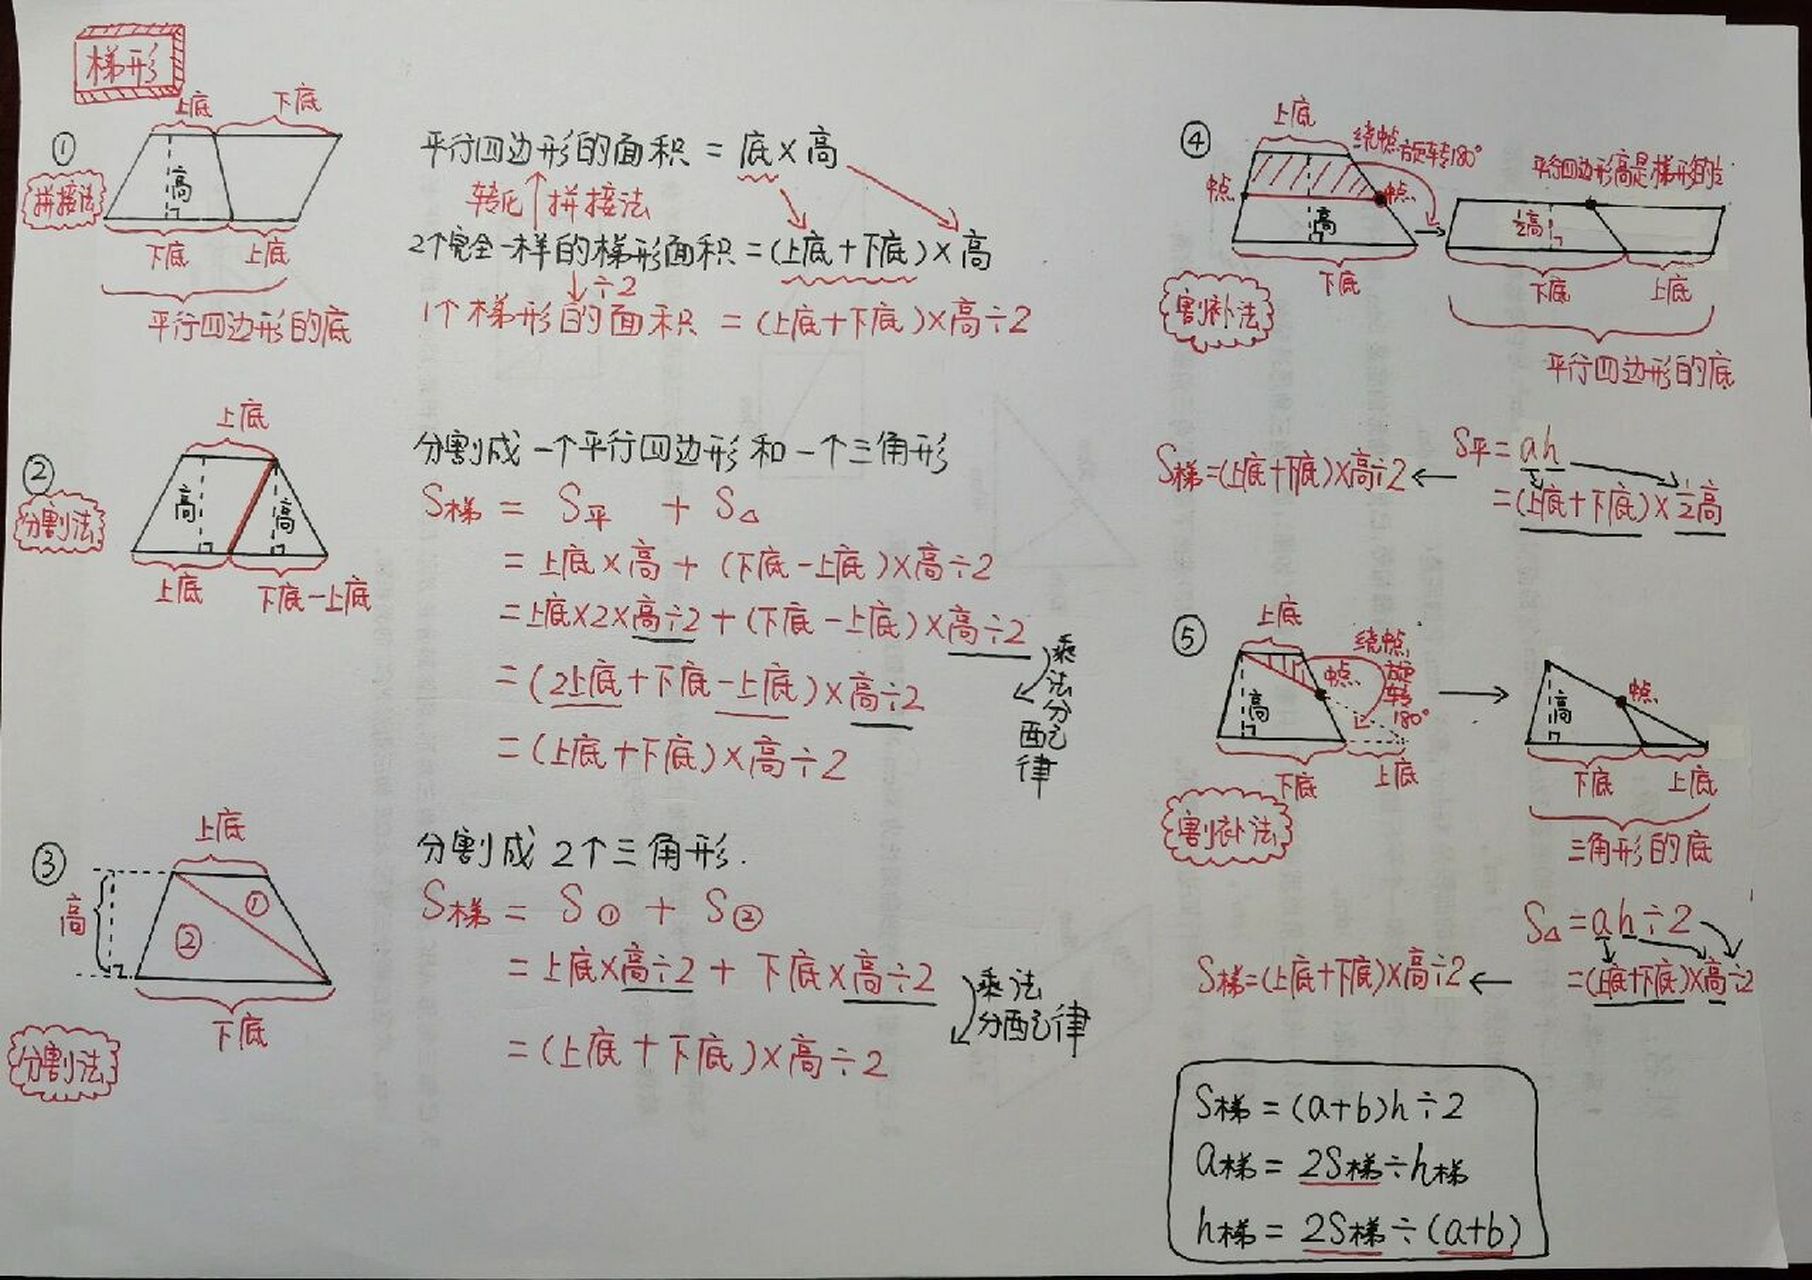 梯形
①
拼接法
上底 下底
高
下底 上底
平行四边形的底
平行四边形的面积 = 底×高
转化 拼接法
2个完全一样的梯形面积=(上底+下底)×高
÷2
1个梯形的面积 =(上底+下底)×高÷2
②
分割法
上底
高 高
上底 下底-上底
分割成一个平行四边形和一个三角形
S梯 = S平 + S△
= 上底×高 + (下底-上底)×高÷2
=上底×2×高÷2+(下底-上底)×高÷2
=(2上底+下底-上底)×高÷2
=(上底+下底)×高÷2
乘法分配律
③
分割法
上底
高
①
②
下底
分割成2个三角形.
S梯 = S① + S②
= 上底×高÷2 + 下底×高÷2
=(上底+下底)×高÷2
乘法
分配律
④
割补法
上底
绕中点旋转180°
中点 中点
高
下底
平行四边形高是梯形的½
½高
下底 上底
平行四边形的底
S平=ah
=(上底+下底)×½高
S梯=(上底+下底)×高÷2
⑤
割补法
上底
绕中点
旋转
180°
中点
高
下底 上底
中点
高
下底 上底
三角形的底
S△=ah÷2
=(上底+下底)×高÷2
S梯=(上底+下底)×高÷2
S梯=(a+b)h÷2
a梯=2S梯÷h梯
h梯=2S梯÷(a+b)